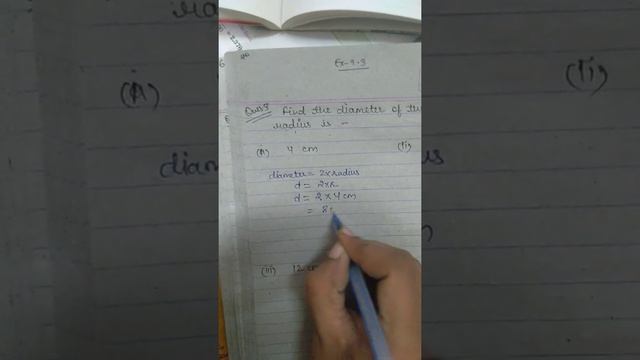 Ex-9.3
Ques3 Find the diameter of the
radius is -
(i) 4 cm (ii)
diameter = 2 x radius
d = 2 x r
d = 2 x 4 cm
= 8
(iii) 12